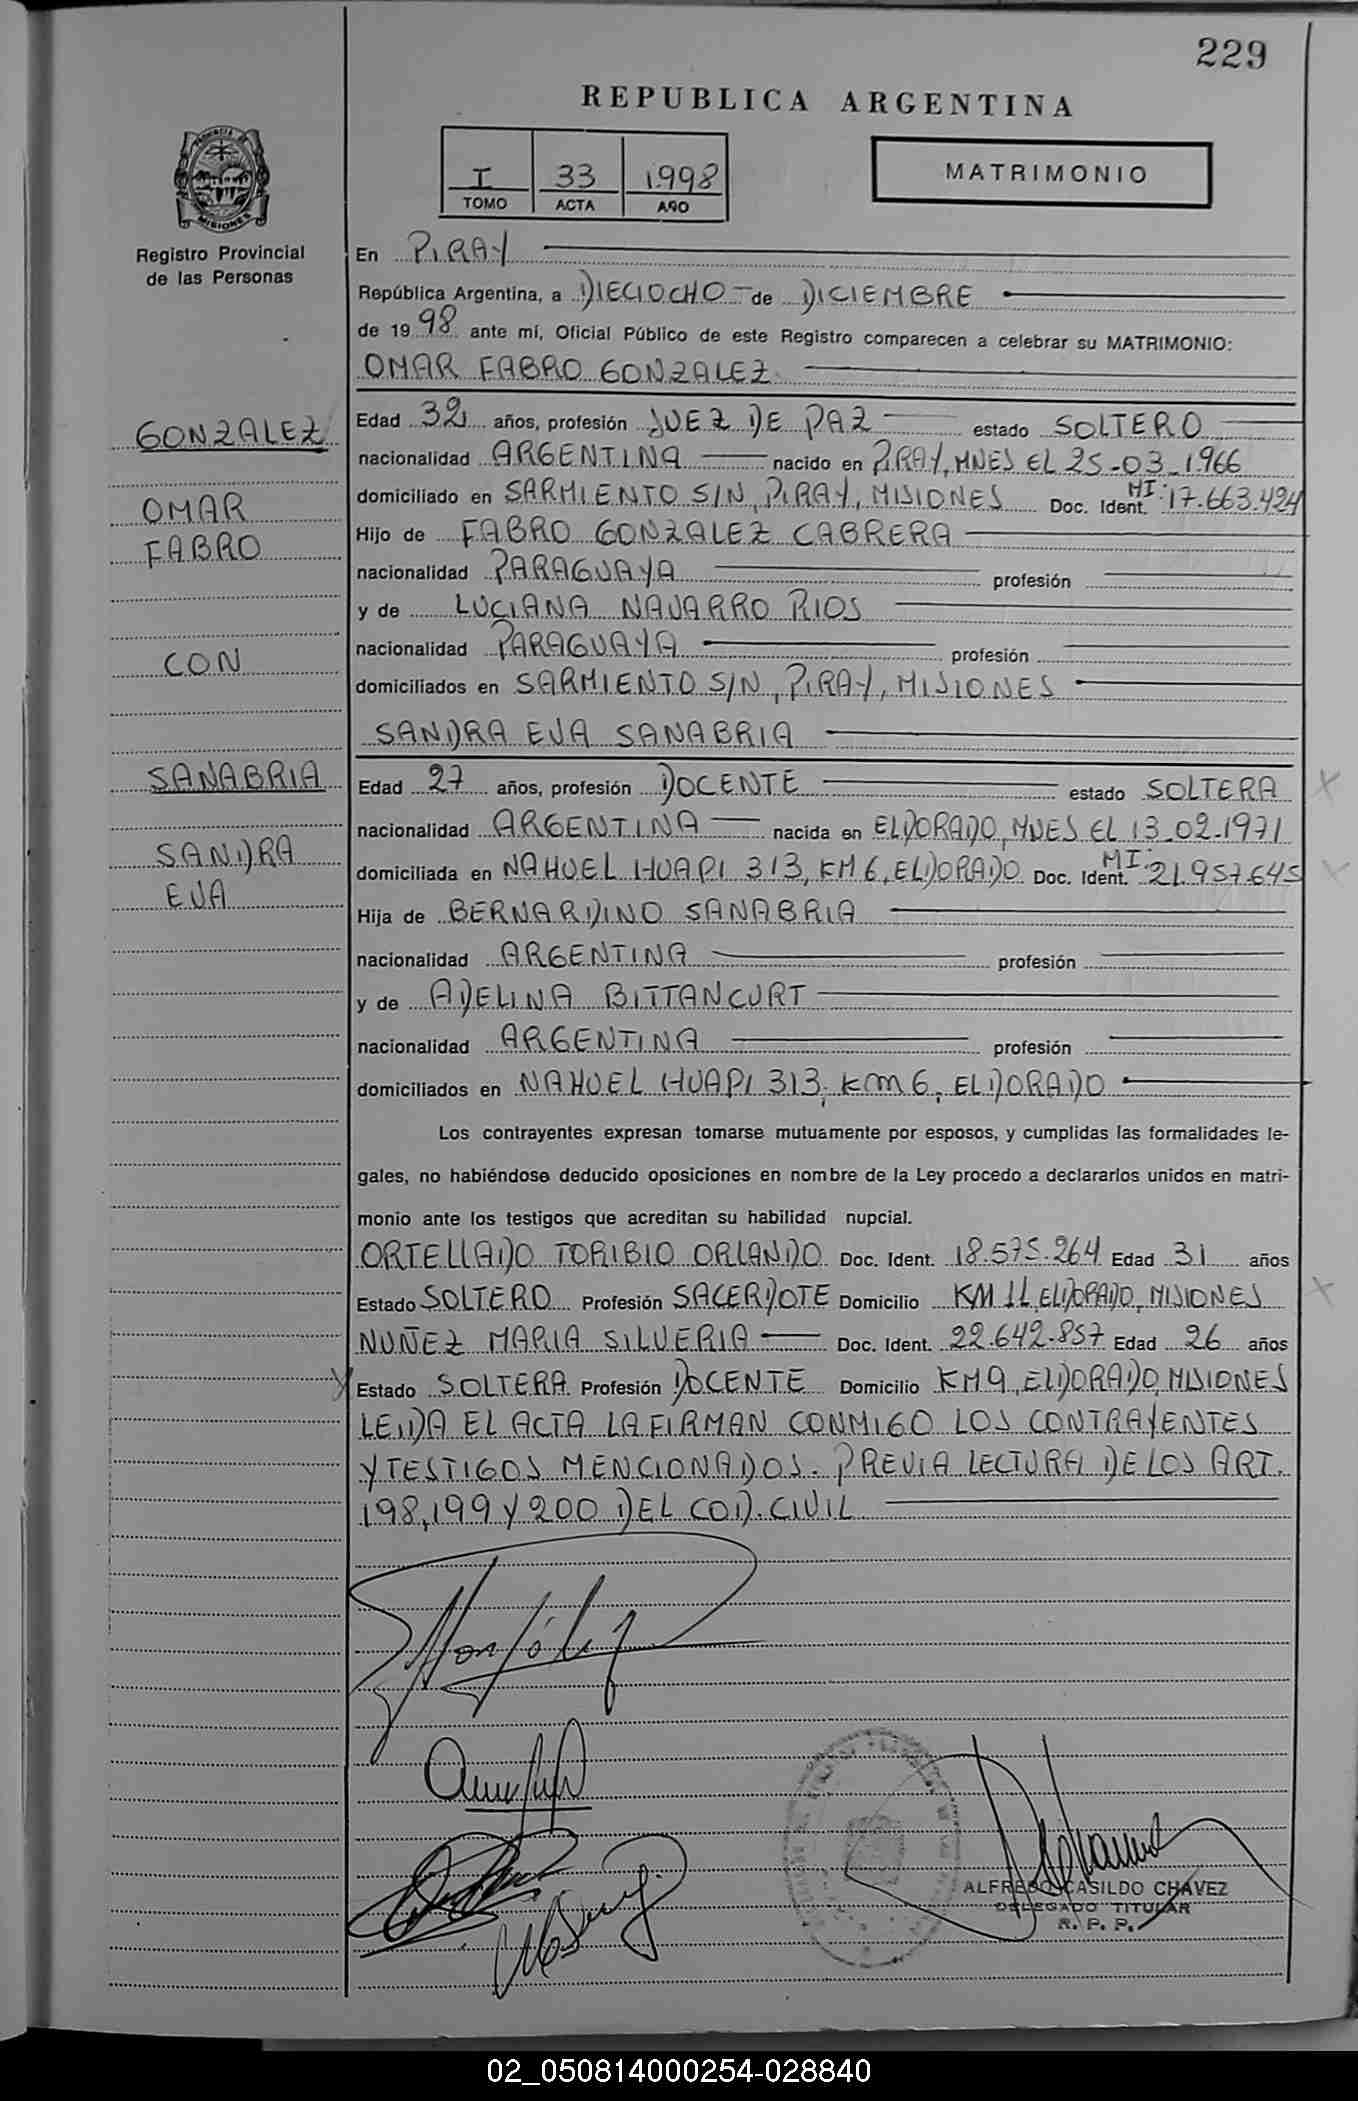 229
REPUBLICA ARGENTINA
I 33 1.998
TOMO ACTA AÑO
MATRIMONIO
PROVINCIA DE MISIONES
Registro Provincial
de las Personas
En PIRAY
República Argentina, a DIECIOCHO de DICIEMBRE
de 19 98 ante mí, Oficial Público de este Registro comparecen a celebrar su MATRIMONIO:
OMAR FABRO GONZALEZ
GONZALEZ
OMAR
FABRO
CON
SANABRIA
SANDRA
EVA
Edad 32 años, profesión JUEZ DE PAZ estado SOLTERO
nacionalidad ARGENTINA nacido en PIRAY, MNES EL 25-03-1.966
domiciliado en SARMIENTO S/N, PIRAY, MISIONES Doc. Ident. MI: 17.663.424
Hijo de FABRO GONZALEZ CABRERA
nacionalidad PARAGUAYA profesión
y de LUCIANA NAVARRO RIOS
nacionalidad PARAGUAYA profesión
domiciliados en SARMIENTO S/N, PIRAY, MISIONES
SANDRA EVA SANABRIA
Edad 27 años, profesión DOCENTE estado SOLTERA
nacionalidad ARGENTINA nacida en ELDORADO, MNES EL 13-02-1971
domiciliada en NAHUEL HUAPI 313, KM 6, ELDORADO Doc. Ident. MI: 21.957.645
Hija de BERNARDINO SANABRIA
nacionalidad ARGENTINA profesión
y de ADELINA BITTANCURT
nacionalidad ARGENTINA profesión
domiciliados en NAHUEL HUAPI 313, KM 6, ELDORADO
Los contrayentes expresan tomarse mutuamente por esposos, y cumplidas las formalidades le-
gales, no habiéndose deducido oposiciones en nombre de la Ley procedo a declararlos unidos en matri-
monio ante los testigos que acreditan su habilidad nupcial.
ORTELLADO TORIBIO ORLANDO Doc. Ident. 18.575.264 Edad 31 años
Estado SOLTERO Profesión SACERDOTE Domicilio KM 11, ELDORADO, MISIONES
NUÑEZ MARIA SILVERIA Doc. Ident. 22.642.857 Edad 26 años
Estado SOLTERA Profesión DOCENTE Domicilio KM 9, ELDORADO, MISIONES
LEIDA EL ACTA LA FIRMAN CONMIGO LOS CONTRAYENTES
Y TESTIGOS MENCIONADOS. PREVIA LECTURA DE LOS ART.
198, 199 Y 200 DEL COD. CIVIL
ALFREDO CASILDO CHAVEZ
DELEGADO TITULAR
R. P. P.
02_050814000254-028840